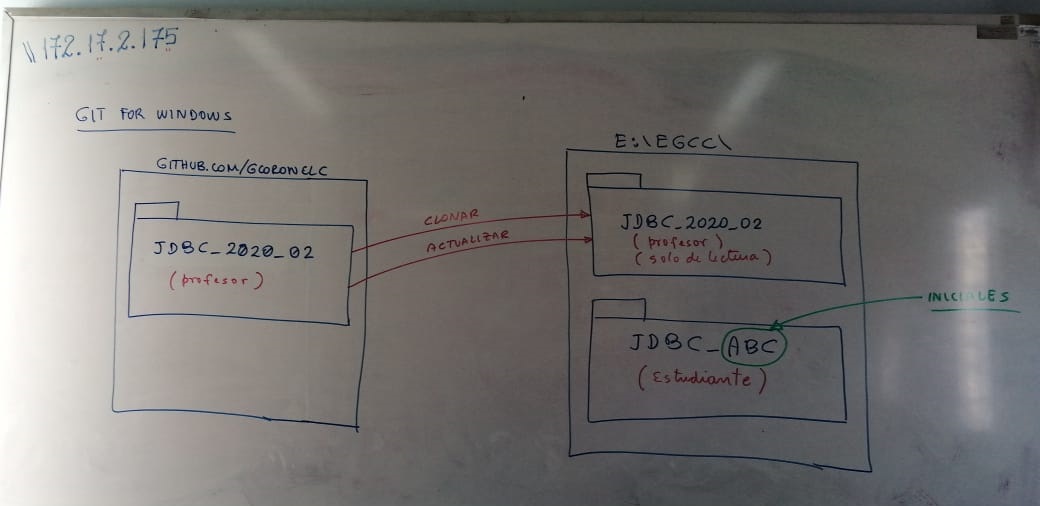 \\172.17.2.175
GIT FOR WINDOWS
GITHUB.COM/GCORONELC
JDBC_2020_02
(profesor)
CLONAR
ACTUALIZAR
E:\EGCC\
JDBC_2020_02
(profesor)
(solo de lectura)
JDBC_ABC
(Estudiante)
INICIALES